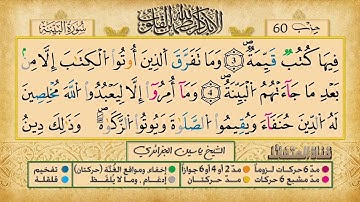 ألا بذكر الله تطمئن القلوب
سُورَةُ البَيِّنَة
حِزْب 60
فِيهَا كُتُبٌ قَيِّمَةٌ ۝٣ وَمَا تَفَرَّقَ الَّذِينَ أُوتُوا الْكِتَابَ إِلَّا مِنْ
بَعْدِ مَا جَاءَتْهُمُ الْبَيِّنَةُ ۝٤ وَمَا أُمِرُوا إِلَّا لِيَعْبُدُوا اللَّهَ مُخْلِصِينَ
لَهُ الدِّينَ حُنَفَاءَ وَيُقِيمُوا الصَّلَاةَ وَيُوتُوا الزَّكَاةَ وَذَلِكَ دِينُ
الشيخ ياسين الجزائري
مدّ 6 حركات لزوماً
مدّ 2 أو 4 أو 6 جوازاً
إخفاء، ومواقع الغُنَّة (حركتان)
تفخيم
مدّ مشبع 6 حركات
مدّ حركتان
إدغام، وما لا يُلفَظ
قلقلة